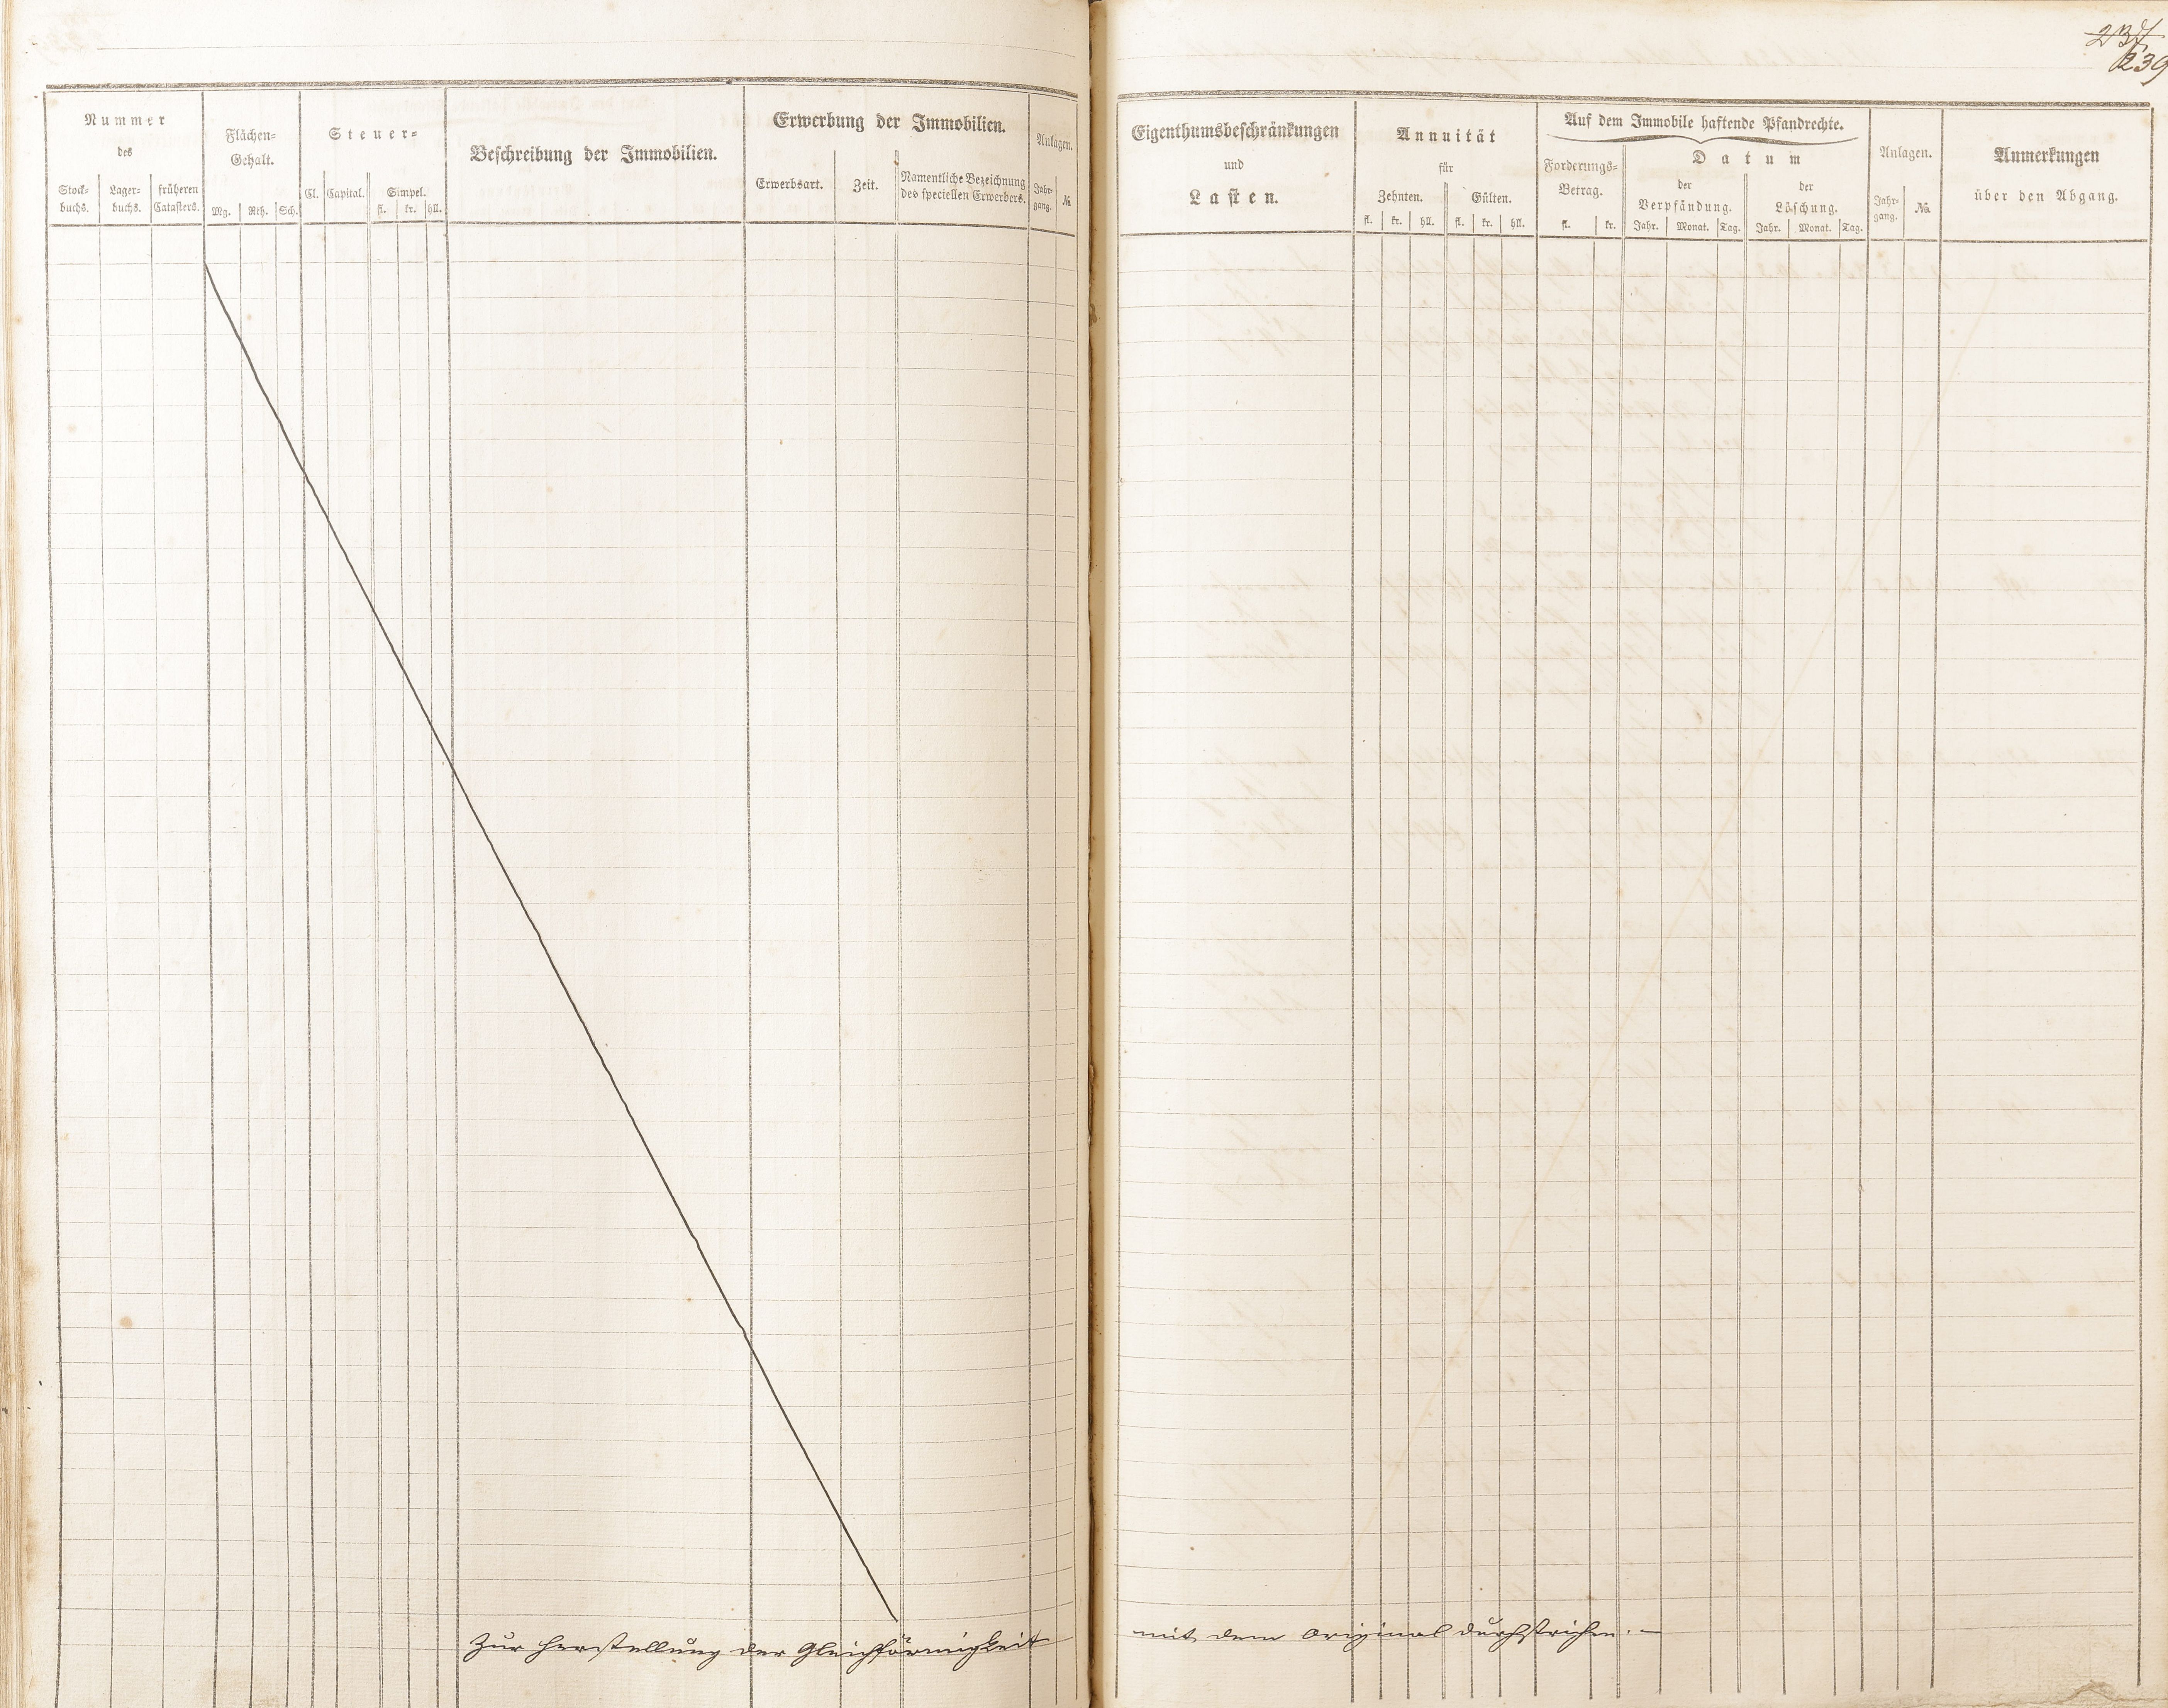 237
239
Nummer
des
Stock-
buchs.
Lager-
buchs.
früheren
Catasters.
Flächen-
Gehalt.
Mg. Rth. Sch.
Steuer-
Cl. Capital. Simpel.
fl. kr. hll.
Beschreibung der Immobilien.
Erwerbung der Immobilien.
Erwerbsart. Zeit. Namentliche Bezeichnung
des speciellen Erwerbers.
Anlagen.
Jahr-
gang.
№
Eigenthumsbeschränkungen
und
Lasten.
Annuität
für
Zehnten. Gülten.
fl. kr. hll. fl. kr. hll.
Auf dem Immobile haftende Pfandrechte.
Forderungs-
Betrag.
fl. kr.
Datum
der
Verpfändung.
Jahr. Monat. Tag.
der
Löschung.
Jahr. Monat. Tag.
Anlagen.
Jahr-
gang.
№
Anmerkungen
über den Abgang.
Zur Herstellung der Gleichförmigkeit mit dem Original durchstrichen. —